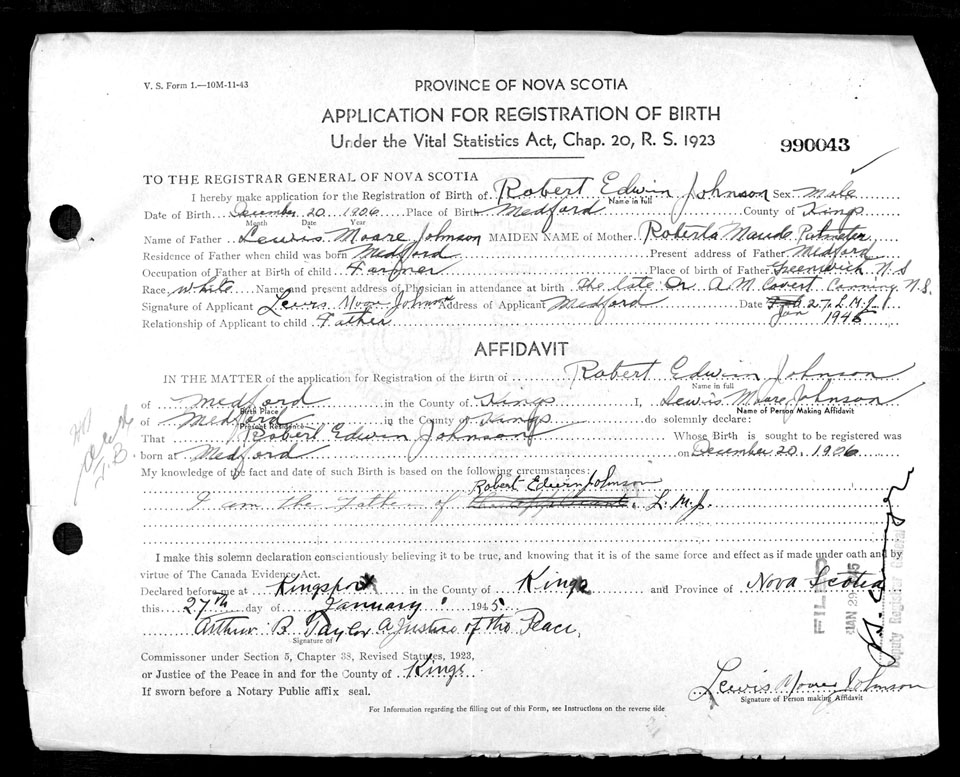 V. S. Form 1.—10M-11-43
PROVINCE OF NOVA SCOTIA
APPLICATION FOR REGISTRATION OF BIRTH
Under the Vital Statistics Act, Chap. 20, R. S. 1923
990043
TO THE REGISTRAR GENERAL OF NOVA SCOTIA
I hereby make application for the Registration of Birth of Robert Edwin Johnson Sex Male
Name in full
Date of Birth December 20 1906 Place of Birth Medford County of Kings
Month Date Year
Name of Father Lewis Moore Johnson MAIDEN NAME of Mother Roberta Maude
Residence of Father when child was born Medford Present address of Father Medford
Occupation of Father at Birth of child Farmer Place of Birth of Father Greenwich N.S
Race White Name and present address of Physician in attendance at birth The late Dr A. M. Covert Canning N.S.
Signature of Applicant Lewis Moore Johnson Address of Applicant Medford Date 27 L.M.J.
Jan 1945
Relationship of Applicant to child Father
AFFIDAVIT
IN THE MATTER of the application for Registration of the Birth of Robert Edwin Johnson
Name in full
of Medford in the County of Kings I, Lewis Moore Johnson
Birth Place Name of Person Making Affidavit
of Medford in the County of Kings do solemnly declare:
Present Residence
That Robert Edwin Johnson Whose Birth is sought to be registered was
born at Medford on December 20, 1906
My knowledge of the fact and date of such Birth is based on the following circumstances:
Robert Edwin Johnson
I am the Father of L. M. J.
I make this solemn declaration conscientiously believing it to be true, and knowing that it is of the same force and effect as if made under oath and by
virtue of The Canada Evidence Act.
Declared before me at Kingsport in the County of Kings and Province of Nova Scotia
this 27th day of January 1945
Arthur B Taylor A Justice of the Peace,
Signature of
Commissioner under Section 5, Chapter 38, Revised Statutes, 1923,
or Justice of the Peace in and for the County of Kings
If sworn before a Notary Public affix seal.
Lewis Moore Johnson
Signature of Person making Affidavit
For Information regarding the filling out of this Form, see Instructions on the reverse side
FILED
JAN 29
Deputy Registrar General